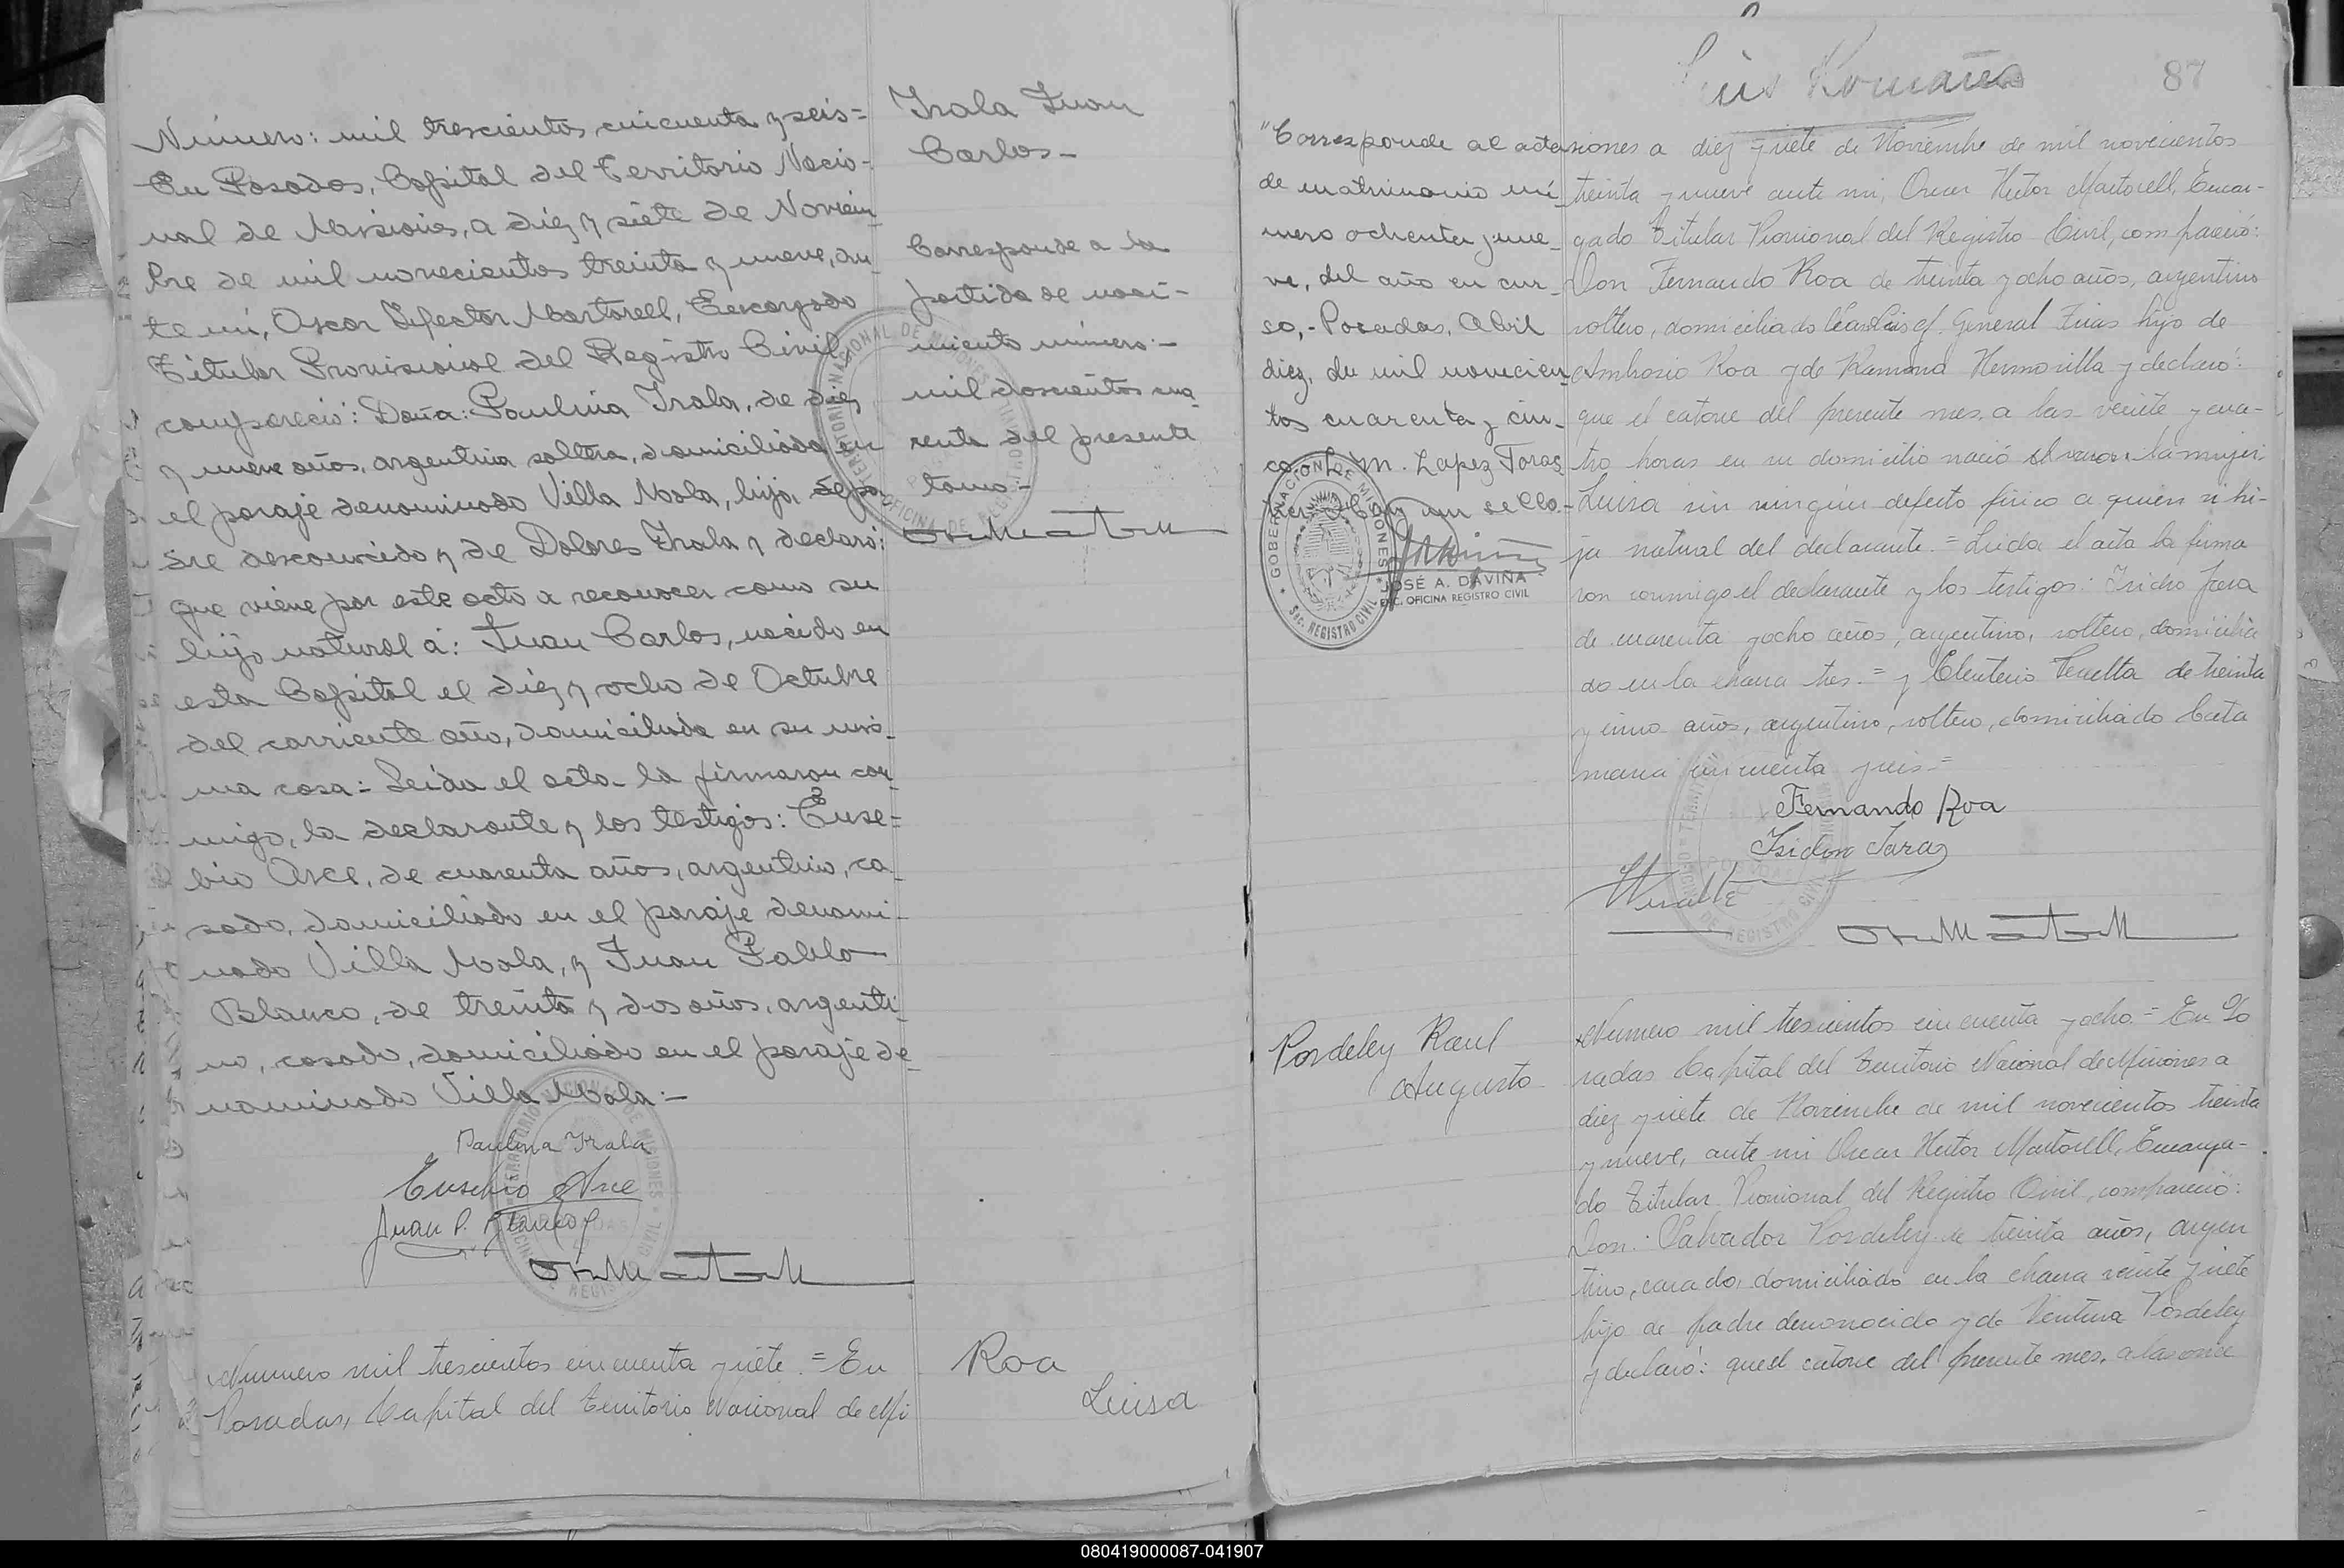 Número: mil trescientos cincuenta y seis=
En Posadas, Capital del Territorio Nacio-
nal de Misiones, a diez y siete de Noviem
bre de mil novecientos treinta y nueve, an-
te mí, Oscar Hector Martorell, Encargado
Titular Provisional del Registro Civil,
compareció: Doña: Paulina Irala, de diez
y nueve años, argentina soltera, domiciliada en
el paraje denominado Villa Mola, hija, de pa
dre desconocido y de Dolores Irala y declaró:
que viene por este acto a reconocer como su
hijo natural á: Juan Carlos, nacido en
esta Capital el diez y ocho de Octubre
del corriente año, domiciliada en su mis-
ma casa:= Leida el acta la firmaron con
migo, la declarante y los testigos: Euse=
bio Arce, de cuarenta años, argentino, ca-
sado, domiciliado en el paraje denomi-
nado Villa Mola, y Juan Pablo
Blanco, de treinta y dos años, argenti-
no, casado, domiciliado en el paraje de-
nominado Villa Mola:-
Paulina Irala
Eusebio Arce
Juan P. Blanco
Numero mil trescientos cincuenta y siete.= En
Posadas, Capital del Territorio Nacional de Mi
Irala Juan
Carlos-
Corresponde a la
partida de naci-
miento número:-
mil doscientos cua-
renta del presente
tomo-
Roa
Luisa
Luis Romañ
87
"Corresponde al acta
de matrimonio nú-
mero ochenta y nue-
ve, del año en cur-
so,- Posadas, Abril
diez, de mil novecien
tos cuarenta y cin-
co. M. Lopez Torres
Hay un sello.-
GOBERNACION DE MISIONES
SEC. REGISTRO CIVIL
JOSÉ A. DAVIÑA
ENC. OFICINA REGISTRO CIVIL
siones a diez y siete de Noviembre de mil novecientos
treinta y nueve ante mi, Oscar Hector Martorell, Encar-
gado Titular Provisional del Registro Civil, compareció:
Don Fernando Roa de treinta y ocho años, argentino
soltero, domiciliado General Frias hijo de
Ambrosio Roa y de Ramona Hermosilla y declaró:
que el catorce del presente mes, a las veinte y cua-
tro horas en su domicilio nació el varon la mujer
Luisa sin ningún defecto fisico a quien es hi-
ja natural del declarante.= Leida el acta la firma
ron conmigo el declarante y los testigos: Isidro Jara
de cuarenta y ocho años, argentino, soltero, domicilia
do en la chacra tres.= y Eleuterio de treinta
y cinco años, argentino, soltero, domiciliado Cata
marca cincuenta y seis.=
Fernando Roa
Isidoro Jara
Posdeley Raul
Augusto
Numero mil trescientos cincuenta y ocho.= En Po
sadas Capital del Territorio Nacional de Misiones a
diez y siete de Noviembre de mil novecientos treinta
y nueve, ante mi Oscar Hector Martorell, Encarga-
do Titular Provisional del Registro Civil, compareció:
Don: Salvador Posdeley de treinta años, argen
tino, casado, domiciliado en la chacra veinte y siete
hijo de padre desconocido y de Ventura Posdeley
y declaró: que el catorce del presente mes, a las once
080419000087-041907